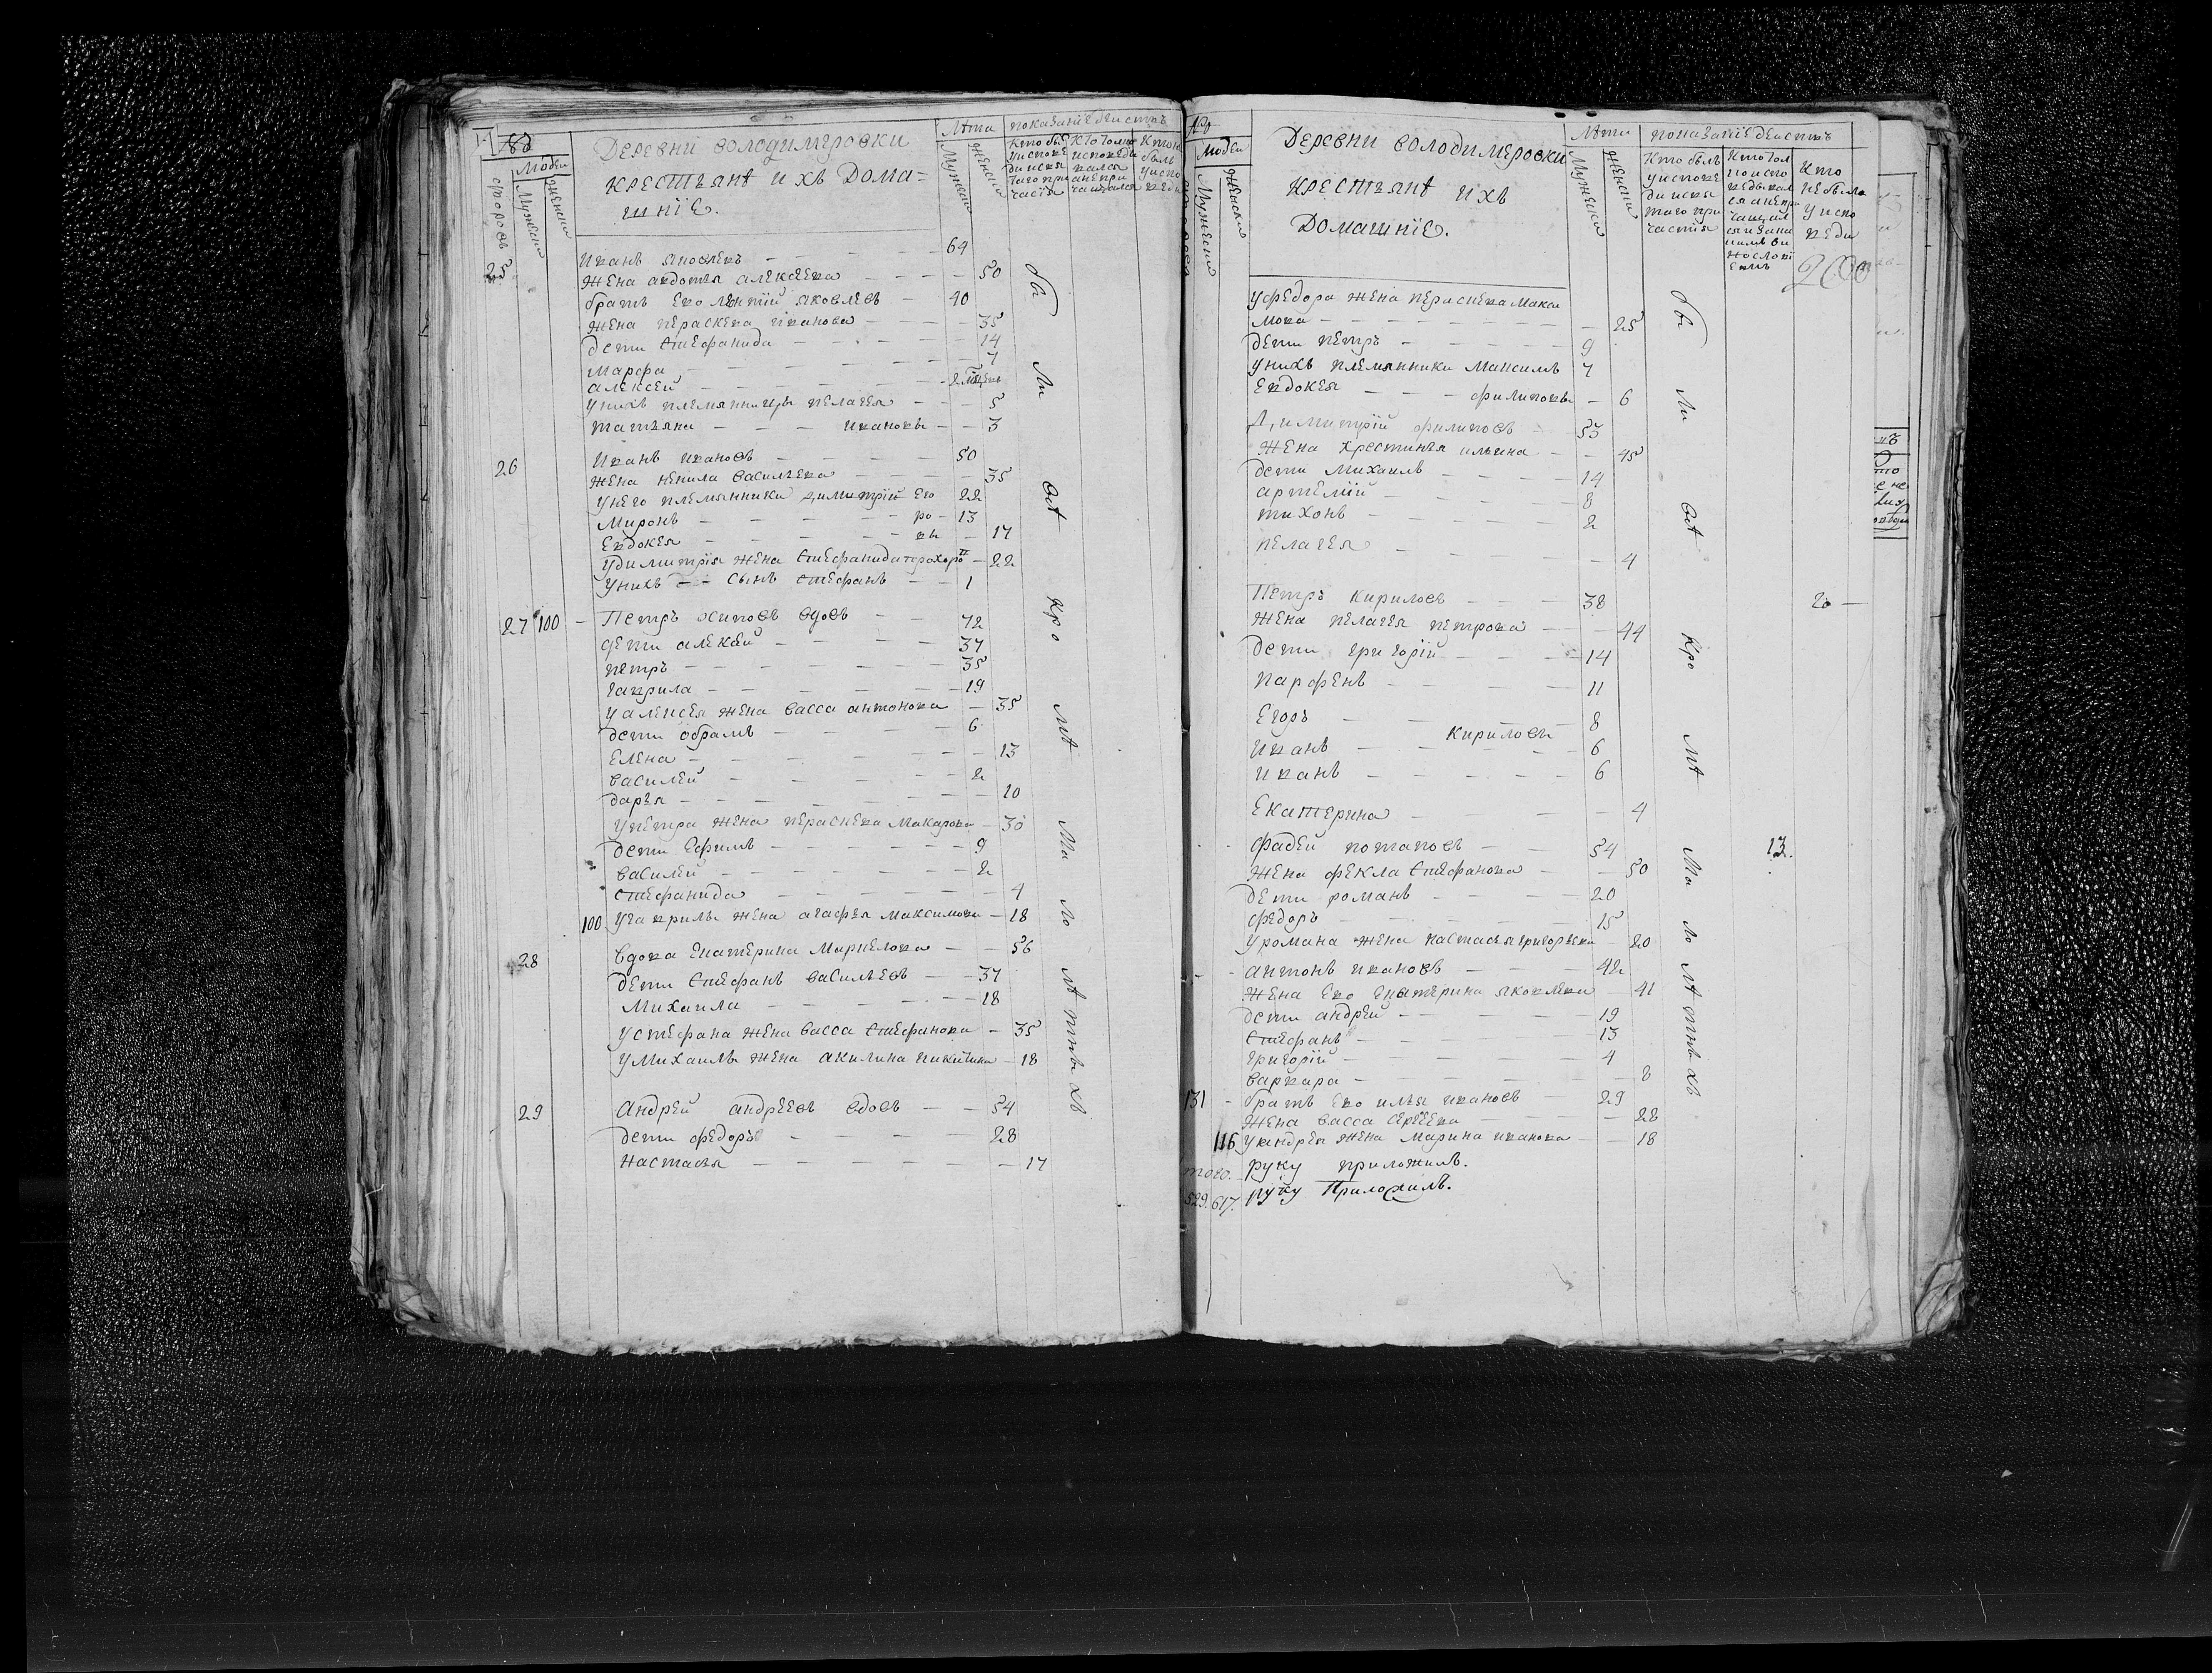 Деревни володимеровки
крестьянѣ и хъ дома=
шнїе.
Люди
дворовъ
Мужеска
Женска
Лѣта
Мужеска
Женска
показанїе дѣиствъ
25
иванъ яковлевъ 64
жена авдотья алексеева 50
братъ ево лѣнтїй яковлевъ 40
жена пераскева иванова 35
дети стефанида 14
марфа 7
алексей
унихъ племянницы пелагея 5
татьяна ивановы 3
26 иванъ ивановъ 50
жена ненила васильева 35
унего племянники димитрїй его 22
миронъ ро 13
евдокея вы 17
удимитрїя жена стефанида прохоро 22
унихъ сынъ стефанъ 1
27 100 Петръ осиповъ вдовъ 72
дети алексей 37
петръ 35
гаврила 19
уалексея жена васса антонова 35
дети обрамъ 6
елена 13
василей 2
дарья 10
упетра жена пераскева макарова 30
дети ефимъ 9
василей 2
стефанида 4
100 угаврилы жена агафея максимова 18
28 вдова екатерина маркелова 56
дети стефанъ васильевъ 37
михаила 18
устефана жена васса стефанова 35
умихаилы жена акилина никитина 18
29 андрей андреевъ вдовъ 54
дети федоръ 28
настасья 17
Деревни володимеровки
крестьянѣ и хъ
домашнїе.
Люди
Мужеска
Женска
Лѣта
Мужеска
Женска
показанїе дѣиствъ
Кто былъ
уиспове
ди исвя
таго при
частия
Кто
не была
у испо
веди
уфедора жена пераскева макси
мова 25
дети петръ 9
унихъ племянники максимъ 7
евдокея филиповы 6
димитрїй филиповъ 53
жена хрестинья ильина 45
дети михаилъ 14
артемїй 8
тихонъ 2
пелагея 4
Петръ кириловъ 38 20
жена пелагея петрова 44
дети григорїй 14
парфенъ 11
егоръ 8
кириловы
иванъ 6
иванъ 6
екатерина 4
фадей потаповъ 54 13.
жена фекла стефанова 50
дети романъ 20
федоръ 15
уромана жена настасья григорьева 20
антонъ ивановъ 42
жена ево екатерина яковлева 41
дети андрей 19
стефанъ 13
григорїй 4
варвара 8
131 братъ ево илья ивановъ 29
жена васса сергеева 28
116 уандрея жена марина иванова 18
того. руку приложилъ.
529. 617. руку Приложилъ.